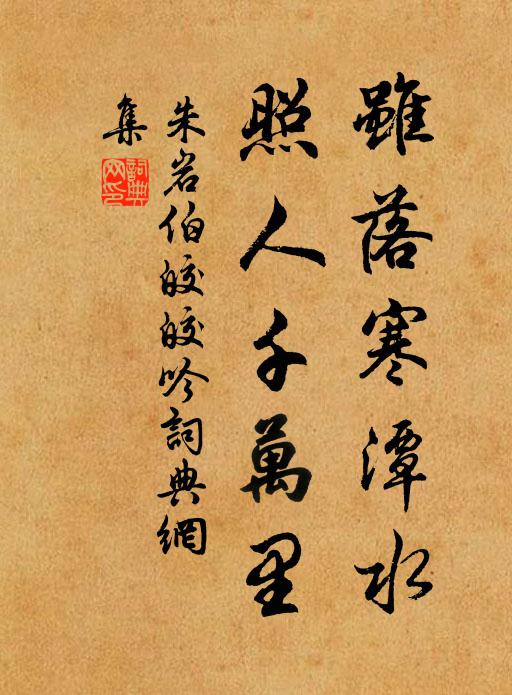 雖落寒潭水
照人千萬里
朱岩伯皎皎吟詞典網
集
詞典网印